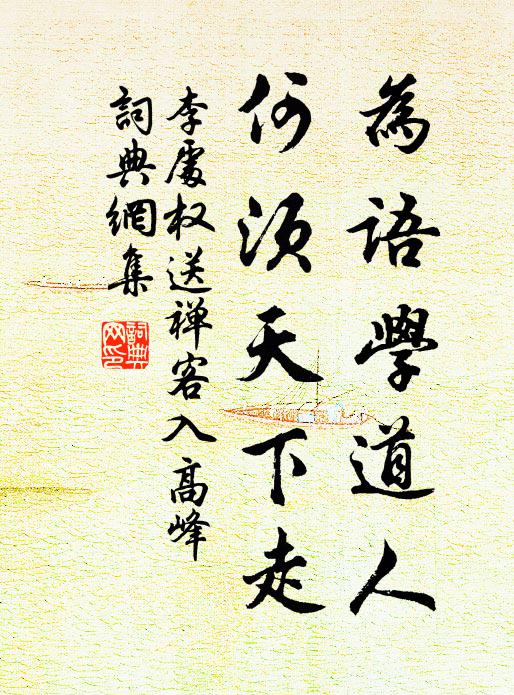 為語學道人
何須天下走
李處权送禅客入高峰
詞典網集
詞典
网印